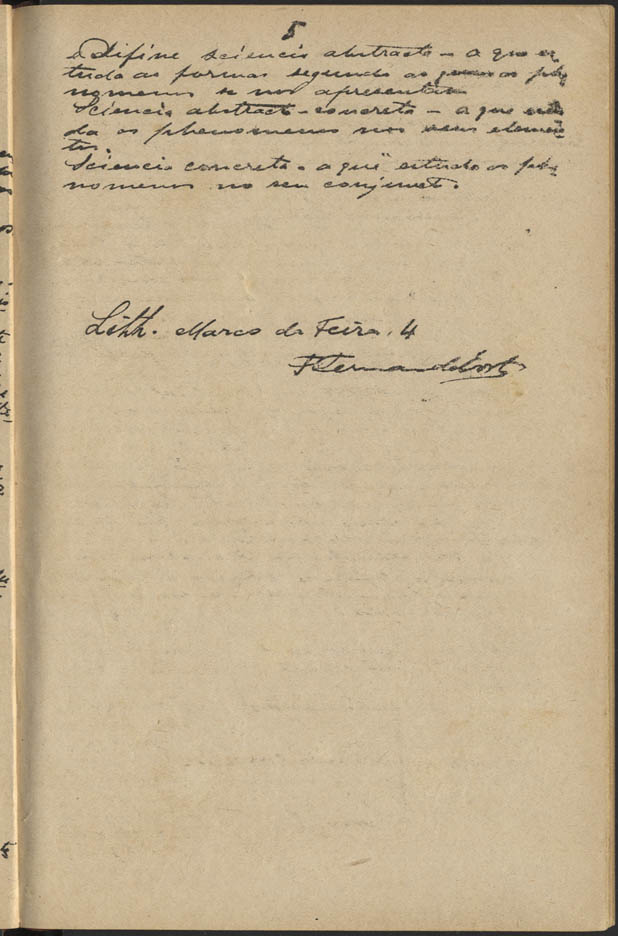 5
Difine sciencia abstracta - a que es-
tuda as formas segundo as quaes os phe-
nomenos se nos apresentam
Sciencia abstract-concreta - a que estu-
da os phenomenos nos seus elemen-
tos.
Sciencia concreta - a que estuda os phe-
nomenos no seu conjuncto.
Lith. Marco da Feira, 4